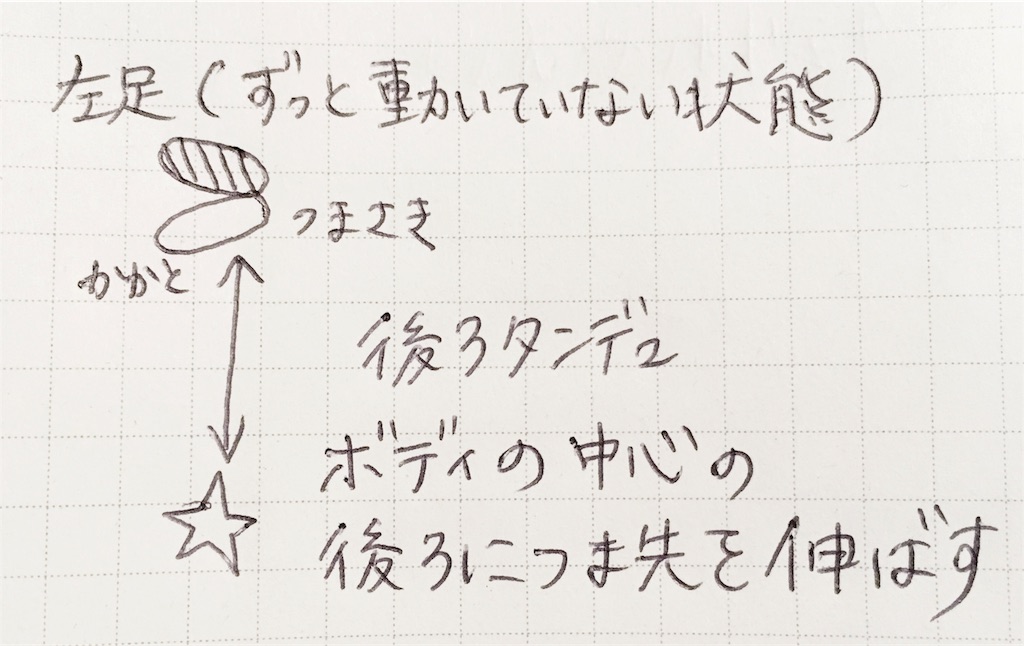 左足(ずっと動かいていない状態)
つまさき
かかと
後ろタンデュ
ボディの中心の
後ろにつま先を伸ばす